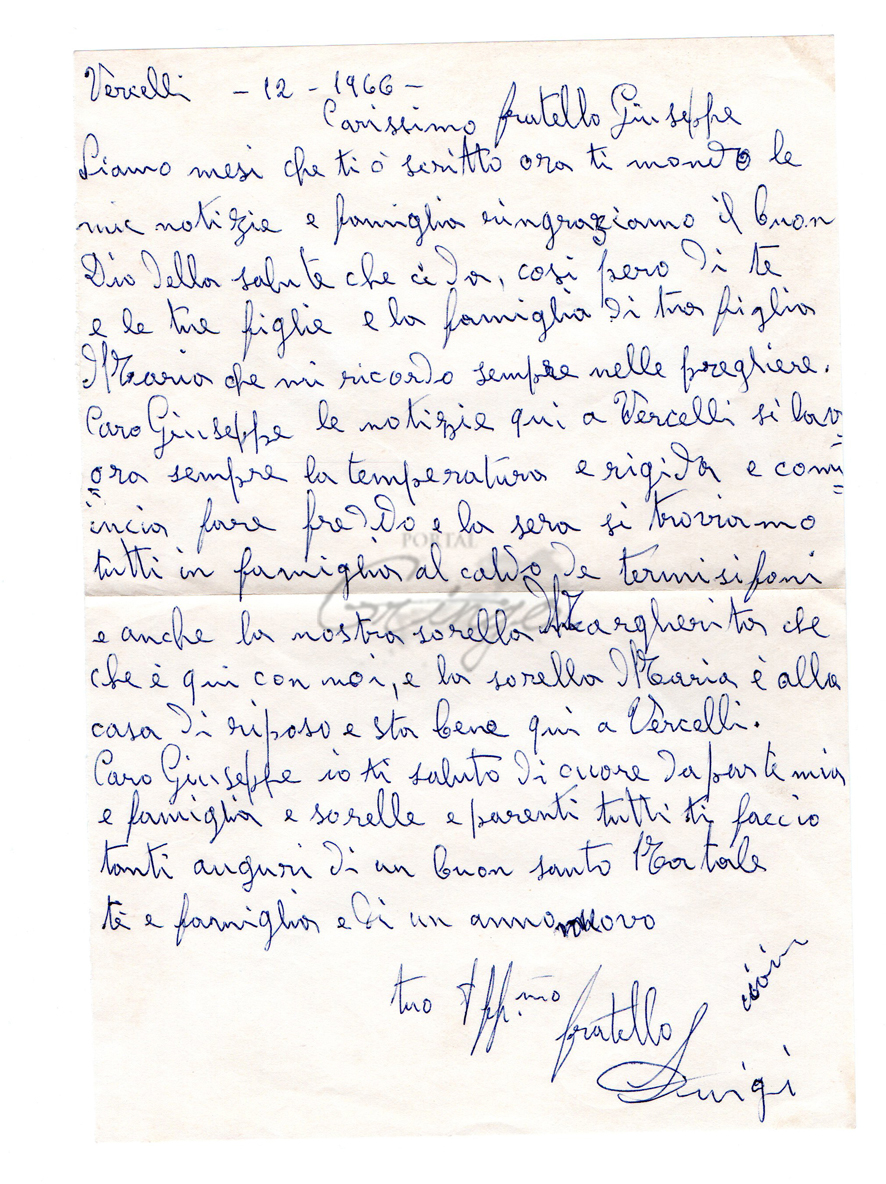 Vercelli - 12 - 1966 -
Carissimo fratello Giuseppe
Siamo mesi che ti ò scritto ora ti mando le
mie notizie e famiglia ringraziamo il buon
Dio della salute che ci da, cosi pero di te
e le tue figlie e la famiglia di tua figlia
Maria che mi ricordo sempre nelle pregliere.
Caro Giuseppe le notizie qui a Vercelli si lav=
=ora sempre la temperatura e rigida e comi=
incia fare freddo e la sera si troviamo
PORTAL
tutti in famiglia al caldo de termisifoni
e anche la nostra sorella Margherita che
che è qui con noi, e la sorella Maria è alla
casa di riposo e sta bene qui a Vercelli.
Caro Giuseppe io ti saluto di cuore da parte mia
e famiglia e sorelle e parenti tutti ti faccio
tanti auguri di un buon santo Natale
te e famiglia e di un anno nuovo
tuo Aff.mo fratello
Luigi